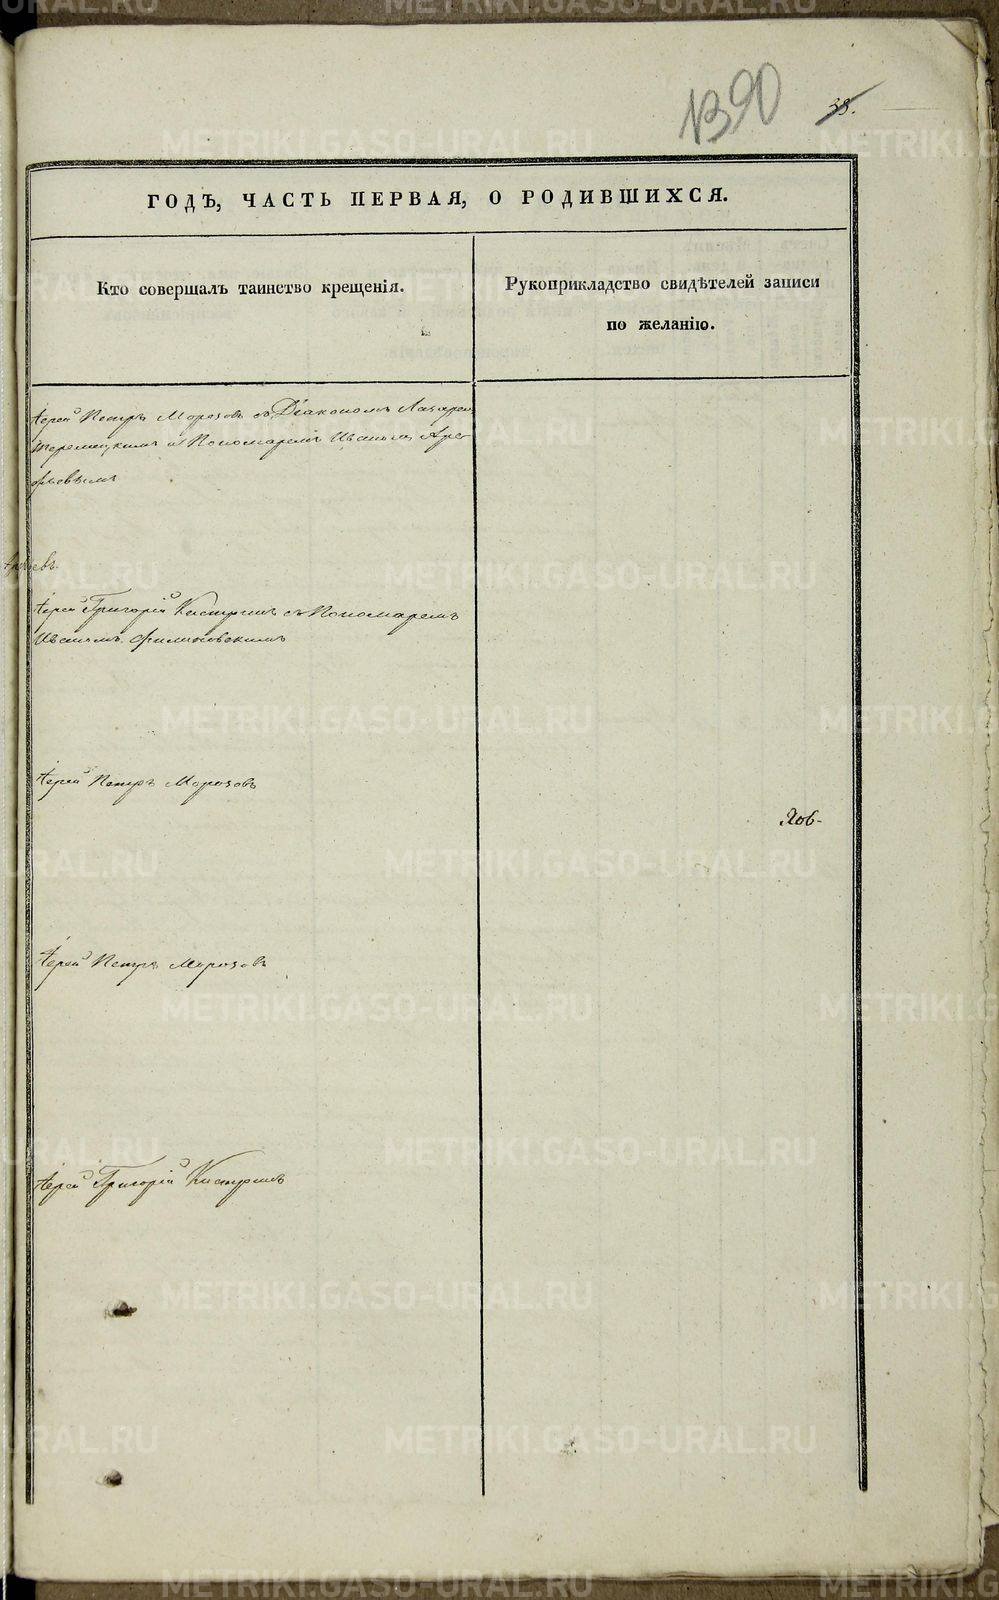 1390
38.
ГОДЪ, ЧАСТЬ ПЕРВАЯ, О РОДИВШИХСЯ.
Кто совершалъ таинство крещенія.
Рукоприкладство свидѣтелей записи
по желанію.
Іерей Петръ Морозовъ съ Діакономъ Лазаремъ
и Пономаремъ Иваномъ Аре-
фьевымъ
Іерей Григорій съ Пономаремъ
Иваномъ
Іерей Петръ Морозовъ
Іерей Петръ Морозовъ
Іерей Григорій
METRIKI.GASO-URAL.RU